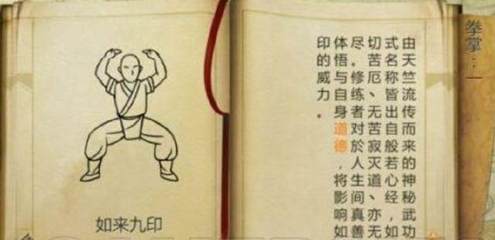 如来九印
拳掌：一
由天竺流传而来的神秘武功
式名称皆出自般若心经，如
切苦厄、无苦寂灭道、亦无
尽。修练者对於人生间真善
体悟与自身道德，将影响如
印的威力。